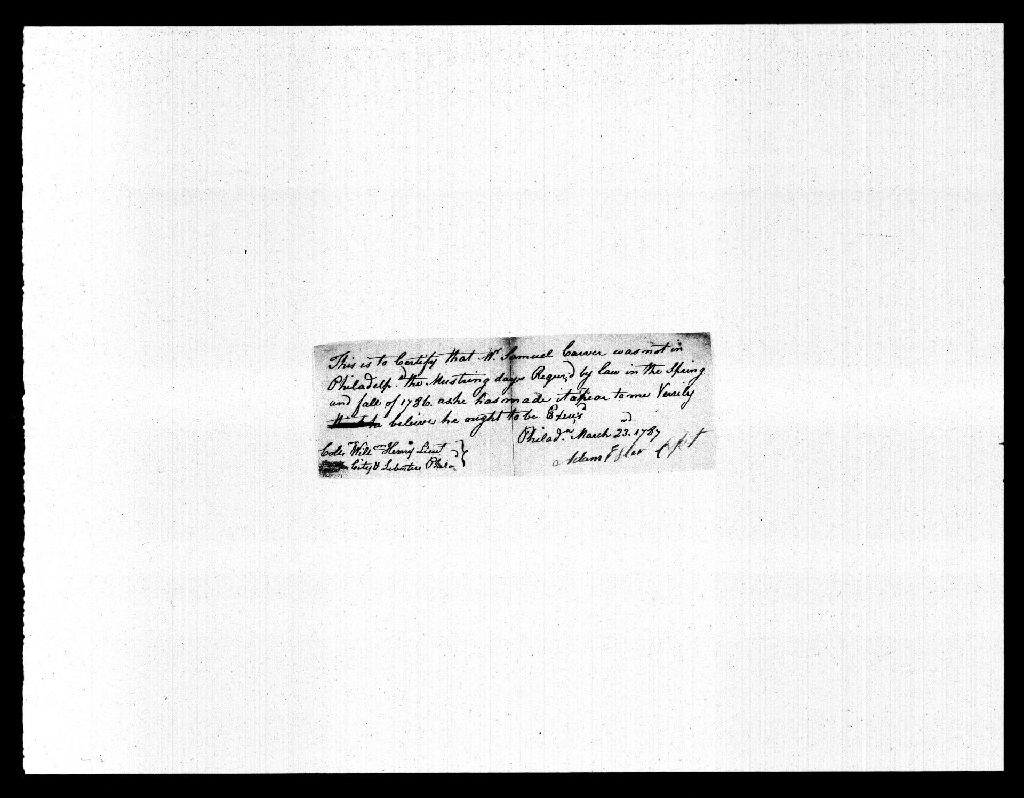 This is to Certify that Mr. Samuel Carver was not in
Philadelpa. the Mustring days Requir'd by law in the Spring
and fall of 1786. as he has made it apear to me Verily
believe he ought to be Excus'd
Philada. March 23d. 1787
Colo. Willm Henry Lieut
City & Liberties Philada
Adam Capt